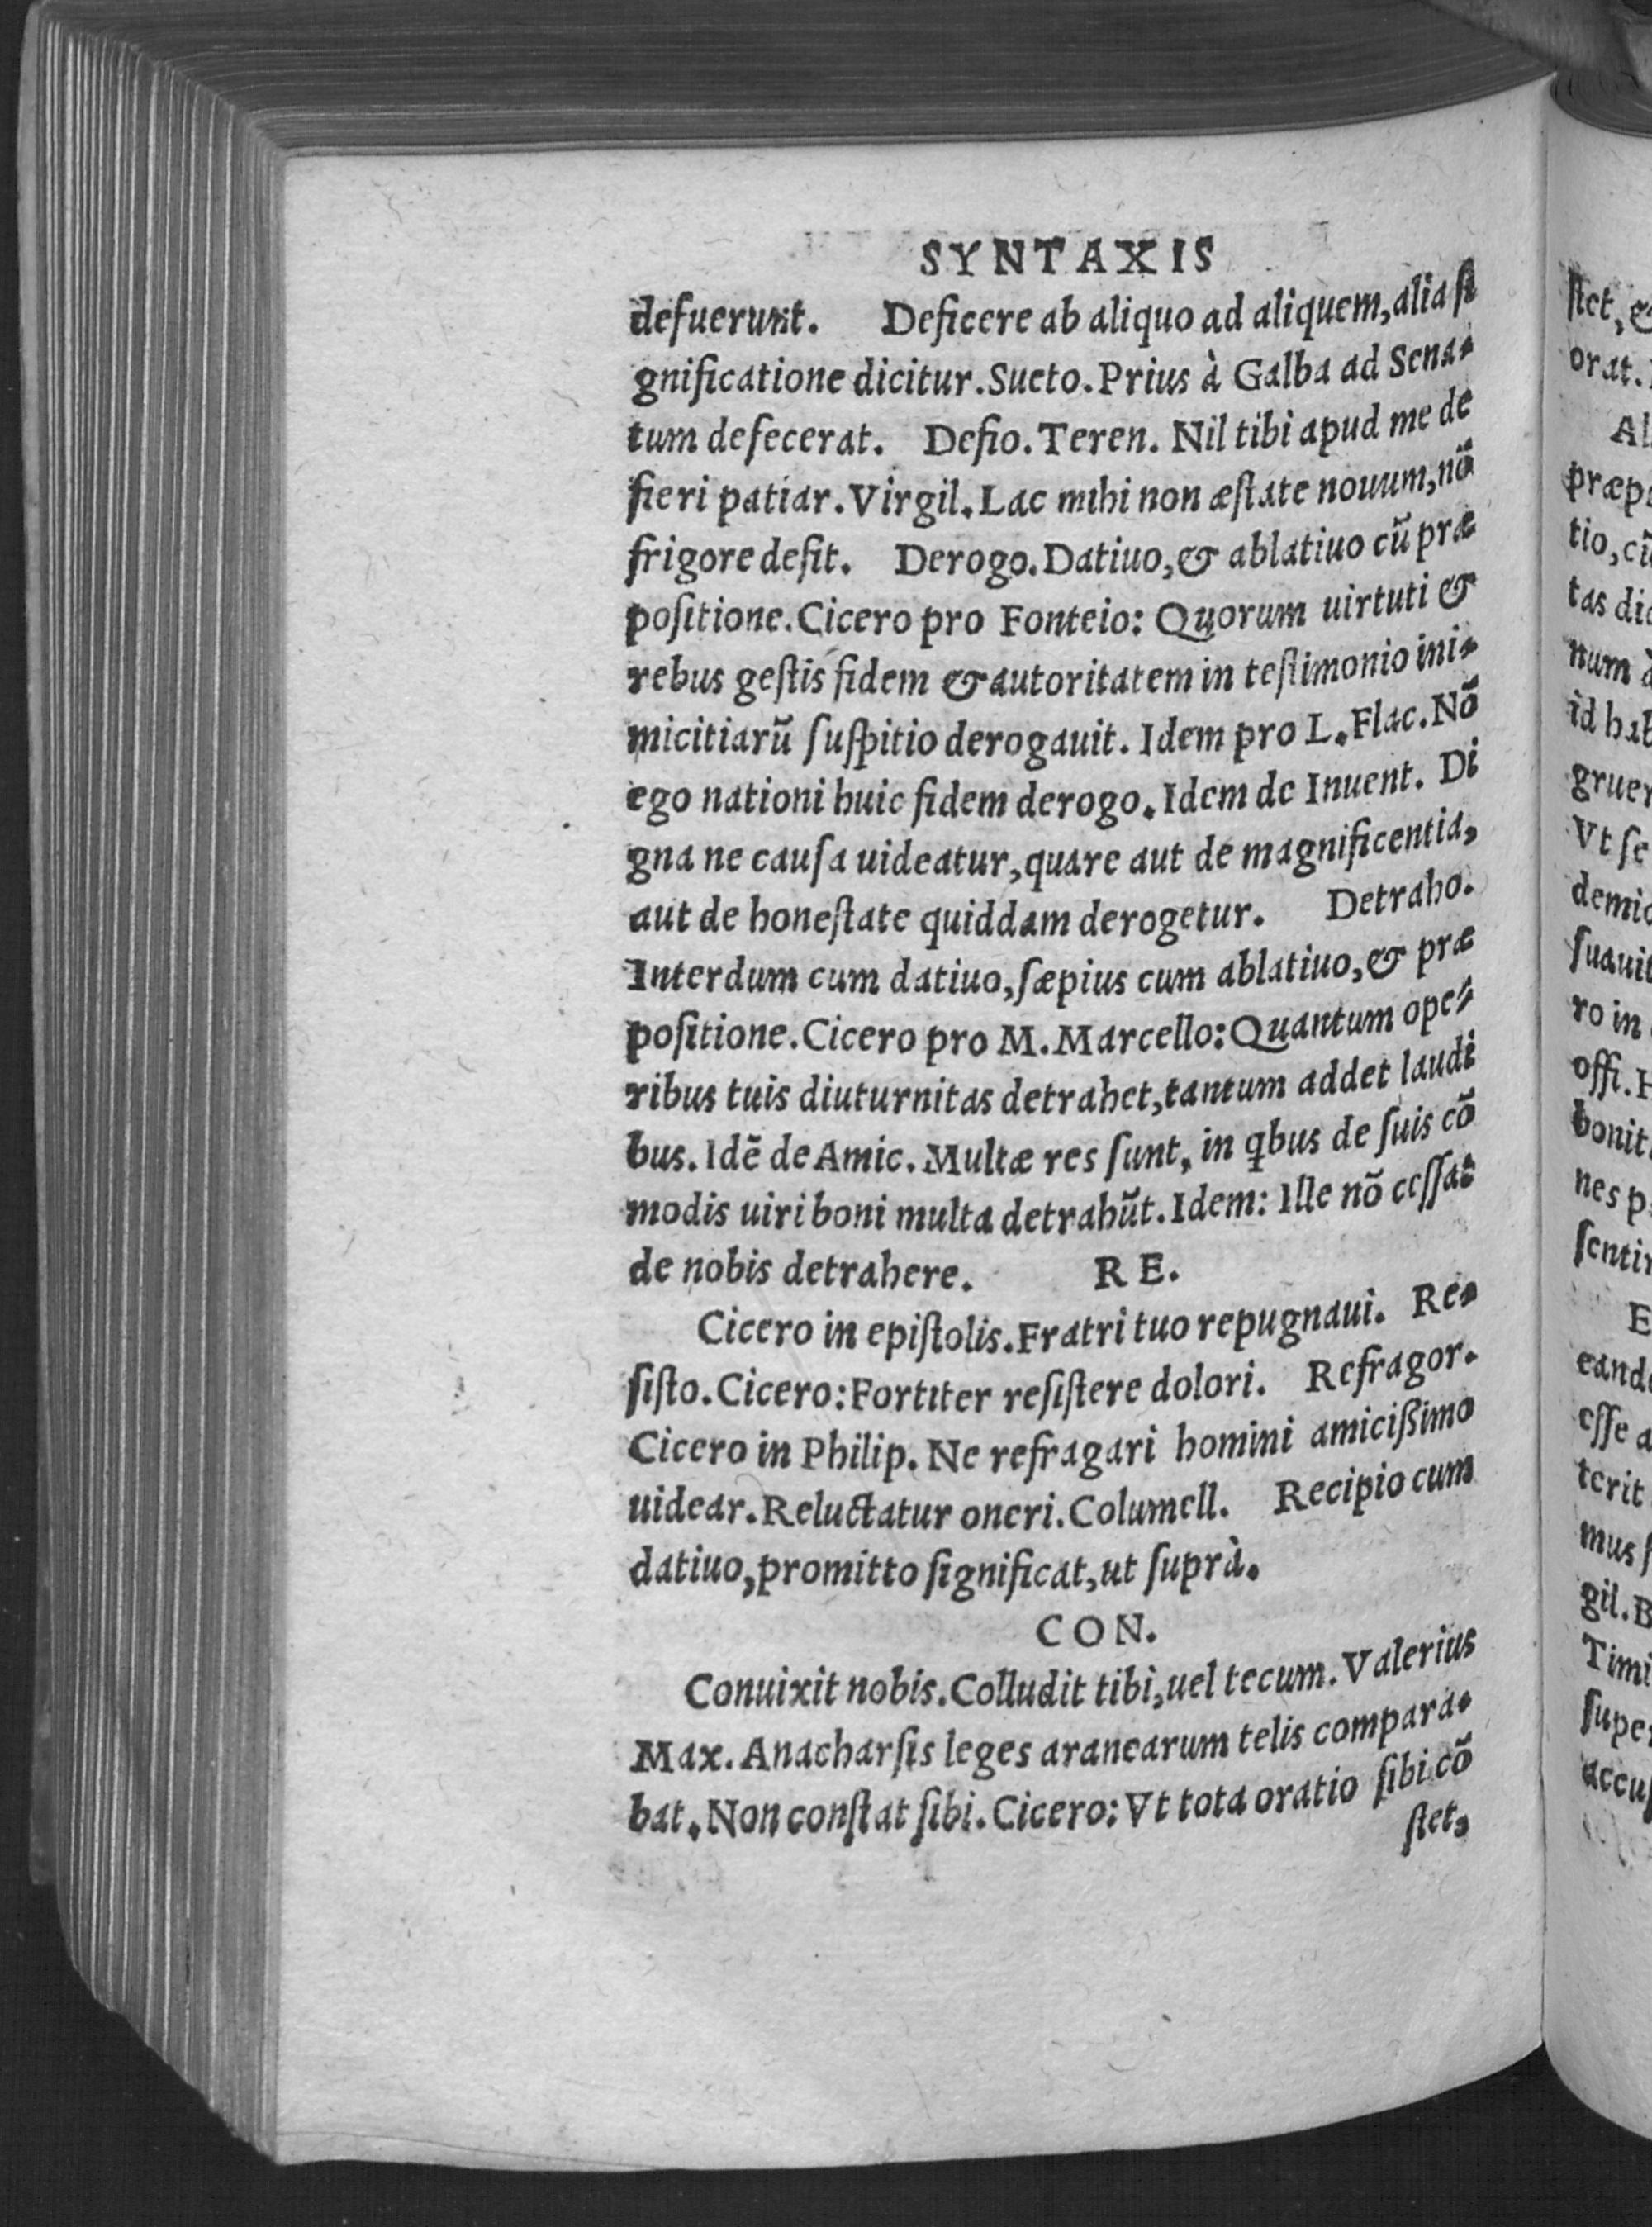 SYNTAXIS
defuerunt. Deficere ab aliquo ad aliquem, alia ſi
gnificatione dicitur. Sueto. Prius à Galba ad Sena-
tum defecerat. Defio. Teren. Nil tibi apud me de
fieri patiar. Virgil. Lac mihi non æſtate nouum, nõ
frigore defit. Derogo. Datiuo, & ablatiuo cũ præ
poſitione. Cicero pro Fonteio: Quorum uirtuti &
rebus geſtis fidem & autoritatem in teſtimonio ini-
micitiarũ ſuſpitio derogauit. Idem pro L. Flac. Nõ
ego nationi huic fidem derogo. Idem de Inuent. Di
gna ne cauſa uideatur, quare aut de magnificentia,
aut de honeſtate quiddam derogetur. Detraho.
Interdum cum datiuo, ſæpius cum ablatiuo, & præ
poſitione. Cicero pro M. Marcello: Quantum ope-
ribus tuis diuturnitas detrahet, tantum addet laudi
bus. Idẽ de Amic. Multæ res ſunt, in qbus de ſuis cõ
modis uiri boni multa detrahũt. Idem: Ille nõ ceſſat
de nobis detrahere. RE.
Cicero in epiſtolis. Fratri tuo repugnaui. Re-
ſiſto. Cicero: Fortiter reſiſtere dolori. Refragor.
Cicero in Philip. Ne refragari homini amicißimo
uidear. Reluctatur oneri. Columell. Recipio cum
datiuo, promitto ſignificat, ut ſuprà.
CON.
Conuixit nobis. Colludit tibi, uel tecum. Valerius
Max. Anacharſis leges aranearum telis compara-
bat. Non conſtat ſibi. Cicero: Vt tota oratio ſibi cõ
ſtet,
ſtet, &
orat.
tio, cũ
num
gruer
Vt ſe
ro in
offi. H
nes p
E
eſſe a
terit
mus ſ
gil. B
Timi